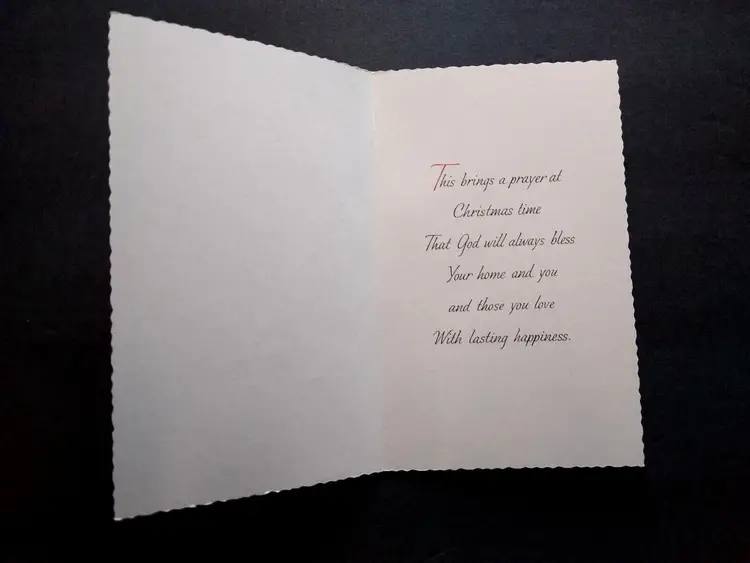 This brings a prayer at
Christmas time
That God will always bless
Your home and you
and those you love
With lasting happiness.